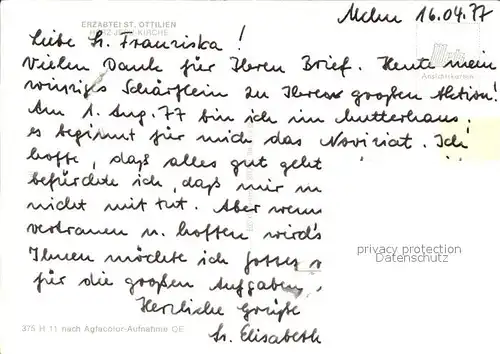 ERZABTEI ST. OTTILIEN
HERZ-JESU-KIRCHE
16.04.77
Liebe Sr. Franziska!
Vielen Dank für Ihren Brief. Heute mein
winziges Schärflein zu Ihrer großen Aktion!
Ansichtskarten
Am 1. Aug. 77 bin ich im Mutterhaus;
es beginnt für mich das Noviziat. Ich
hoffe, daß alles gut geht
befürchte ich, daß mir
nicht mit tut. Aber wenn
vertrauen u. hoffen wird's
Ihnen möchte ich Gottes
für die großen Aufgaben
Herzliche Grüße
Sr. Elisabeth
privacy protection
Datenschutz
375 H 11 nach Agfacolor-Aufnahme OE